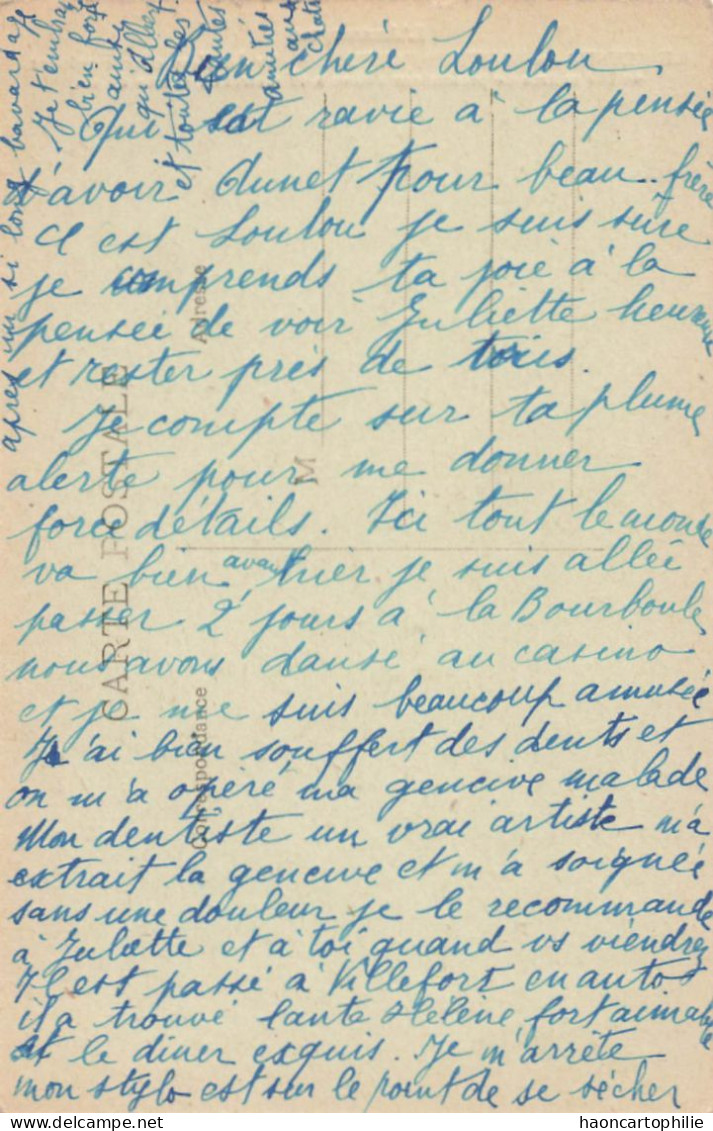 Bien chéré Loulou
Qui est ravie à la pensée
d'avoir Dunet pour beau-frère
C est Loulou je suis sûre
je comprends ta joie à la
pensée de voir Juliette heureuse
et rester près de tous.
Je compte sur ta plume
alerte pour me donner
force détails. Ici tout le monde
va bien, avant hier je suis allée
passer 2 jours à la Bourboule
nous avons dansé au casino
et je me suis beaucoup amusée
J'ai bien souffert des dents et
on m'a opéré ma gencive malade
Mon dentiste un vrai artiste m'a
extrait la gencive et m'a soignée
sans une douleur je le recommande
à Juliette et à toi quand vs viendrez
Il est passé à Villefort en auto
il a trouvé tante Hélène fort aimable
et le diner exquis. Je m'arrête
mon stylo est sur le point de se sécher
après un si long bavardage
Je t'embrasse
bien fort
ainsi
qu'Alley
et toutes les
amitiés
aux
CARTE POSTALE
Correspondance
Adresse
M
haoncartophilie